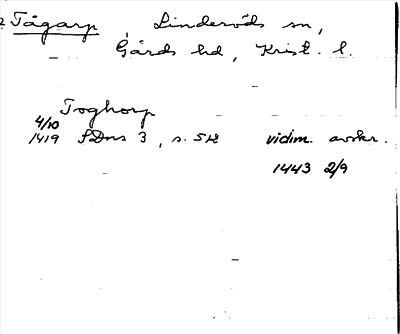 Tågarp, Linderöds sn,
Gärds hd, Krist. l.
Toghorp
4/10
1419 SDns 3, s. 512 vidim. avskr.
1443 2/9